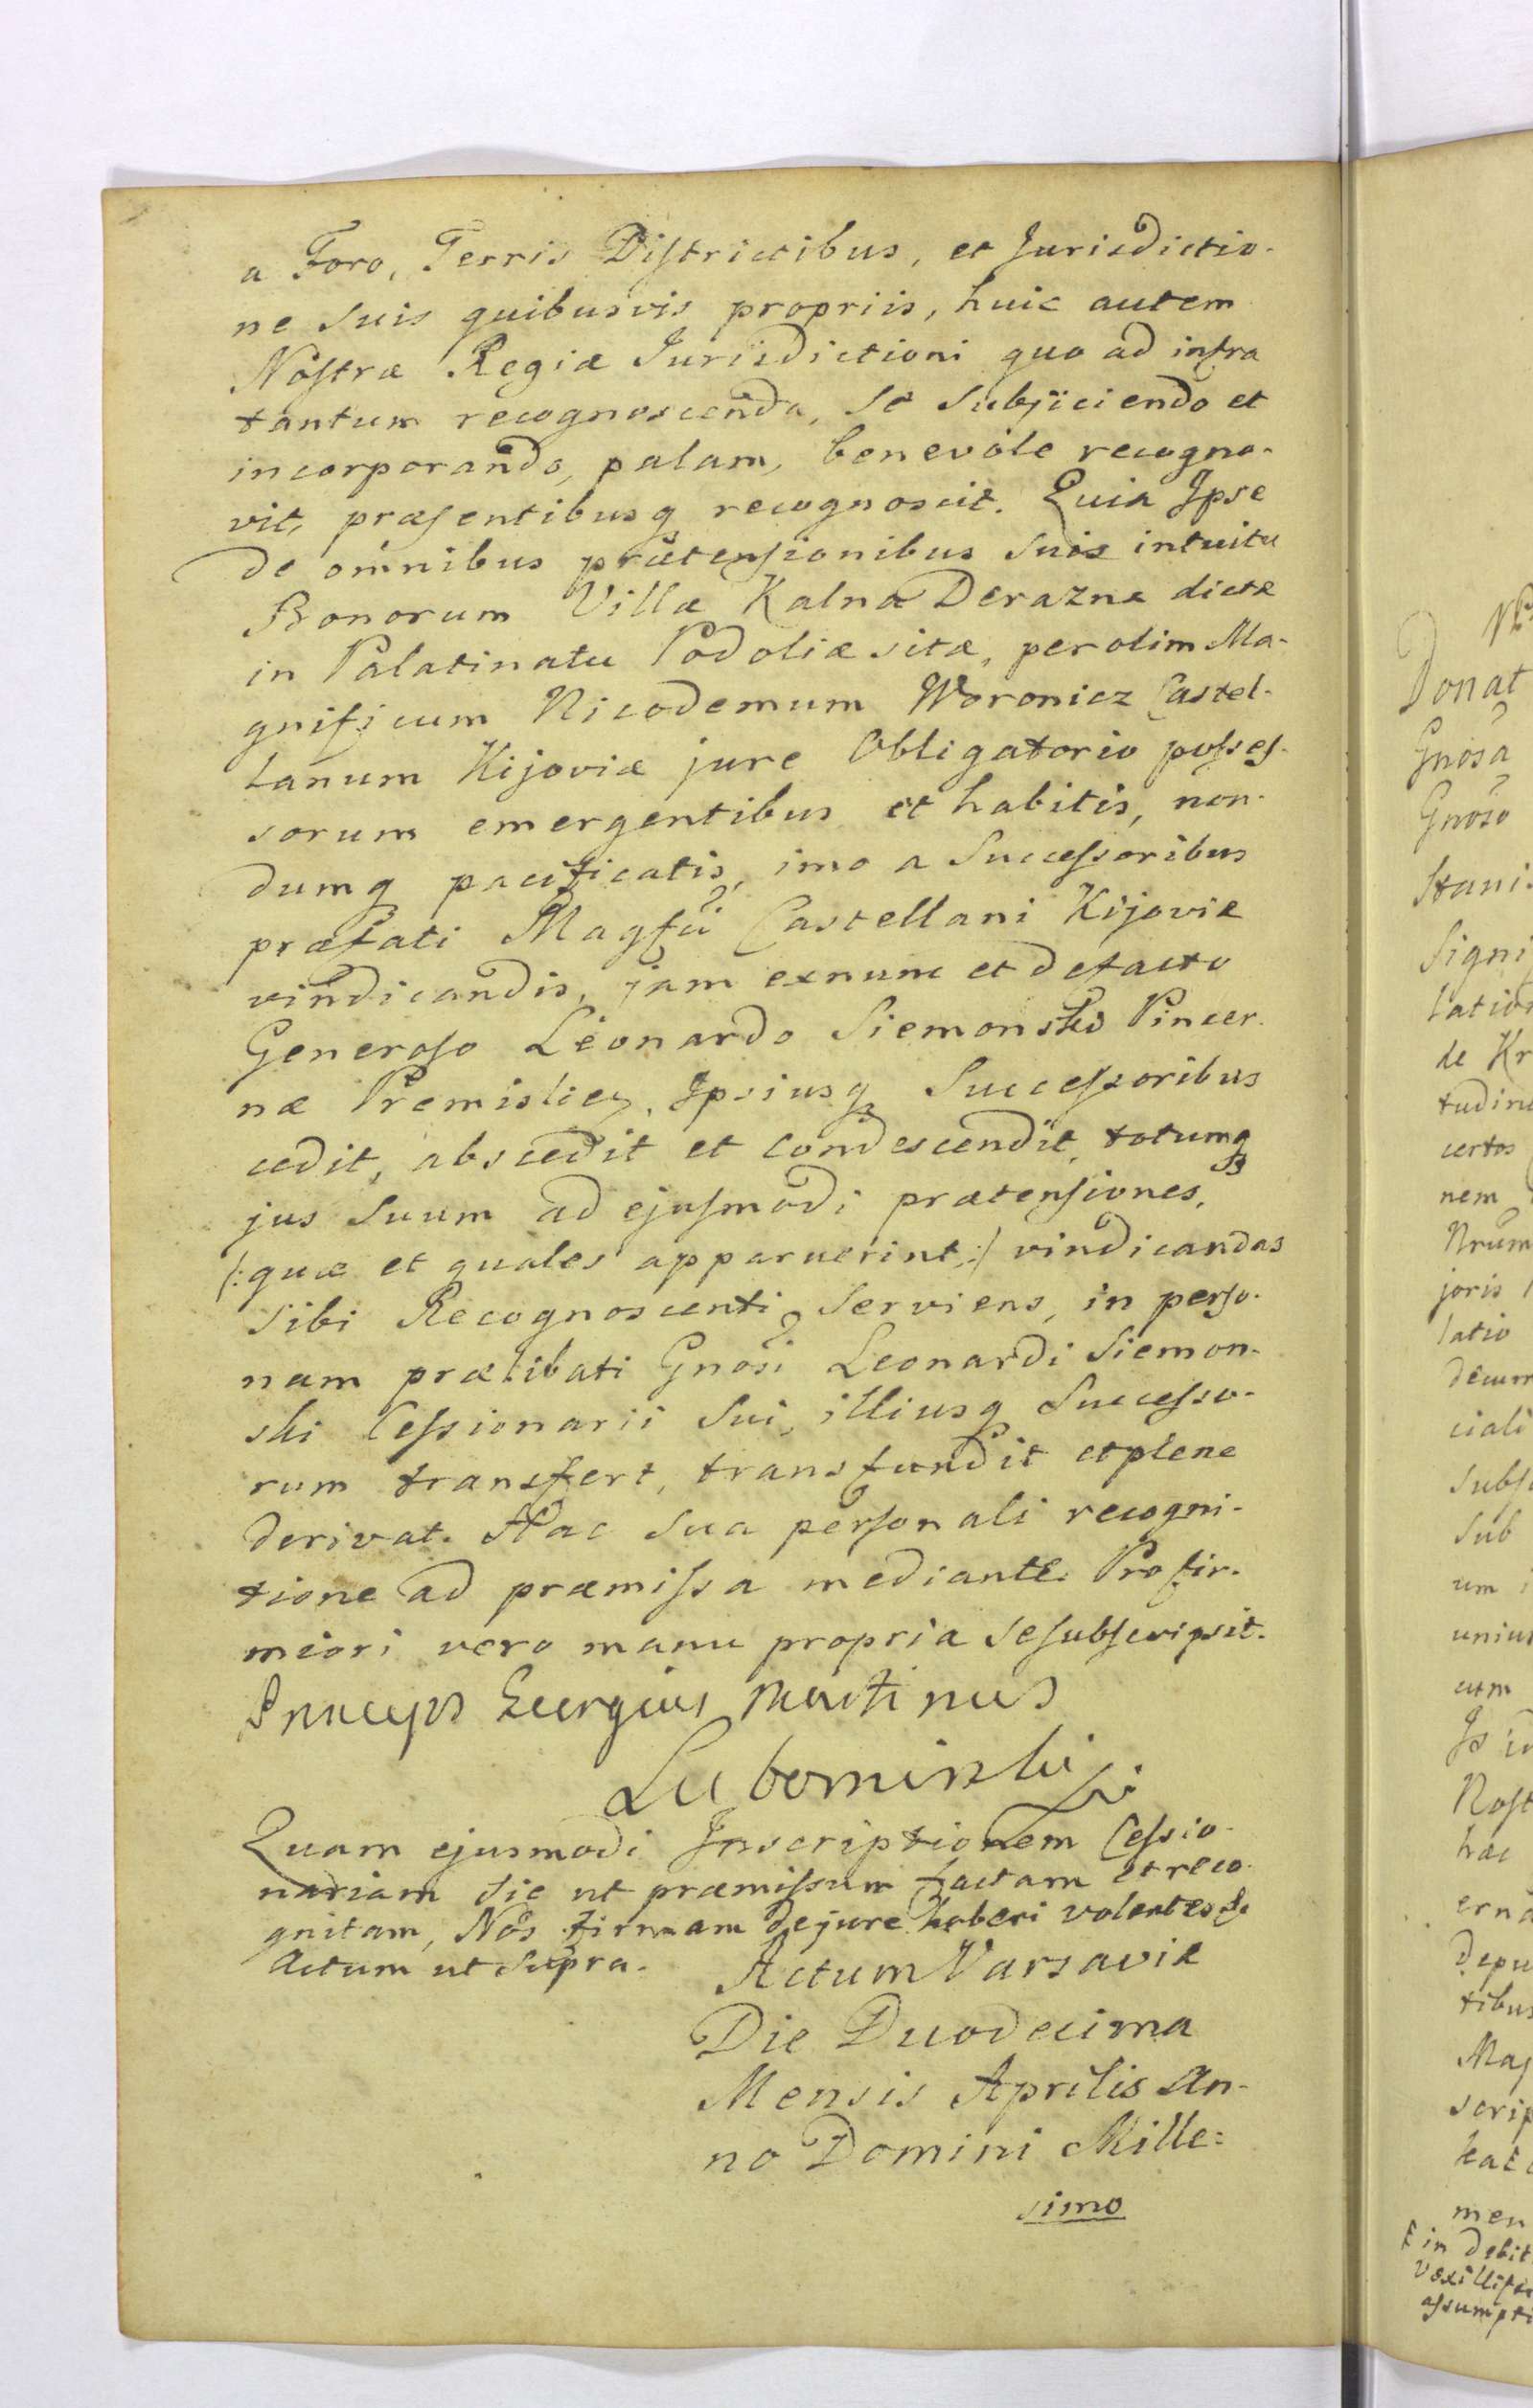 a Foro, Terris Districtibus, et Jurisdictio-
ne Suis quibusvis propriis, huic autem
Nostræ Regiæ Jurisdictioni quo ad infra
tantum recognoscenda, Se Subjiciendo et
incorporando, palam, benevole recogno-
vit, præsentibusq recognoscit. Quia Ipse
de omnibus prætensionibus Suis intuitu
Bonorum Villæ Kalna Derazna dictæ
in Palatinatu Podoliæ sitæ, per olim Ma-
gnificum Nicodemum Woronicz Castel-
lanum Kijoviæ jure Obligatorio posses-
sorum emergentibus et habitis, non-
dumq pacificatis, imo a Successoribus
præfati Magfci Castellani Kijoviæ
vindicandis, jam exnunc et defacto
Generoso Leonardo Siemonski Pincer-
næ Premislien, Ipsiusq Successoribus
cedit, abscedit et condescendit, totumq
jus Suum ad ejusmodi prætensiones,
(: quæ et quales apparuerint :) vindicandas
Sibi Recognoscenti Serviens, in perso-
nam prælibati Gnosi Leonardi Siemon-
ski Cessionarii Sui, illiusq Successo-
rum transfert, transfundit et plene
derivat. Hac Sua personali recogni-
tione ad præmissa mediante. Pro fir-
miori vero manu propria se subscripsit.
Princeps Georgius Martinus
Lubomirski
Quam ejusmodi Inscriptionem Cessio-
nariam Sic ut præmissum factam et reco-
gnitam, Nos firmam de jure haberi volentes &
Actum ut Supra.
Actum Varsaviæ
Die Duodecima
Mensis Aprilis An-
no Domini Mille=
simo
Donat
Gnosa
Gnoso
Stani
Signi
latio
de Kr
tudin
certos
nem
Nrum
joris
latio
decum
ciali
Subs
Sub
um
unius
cum
Nost
hac
erna
Depu
tibus
Mag
scrip
men
in debit
Vexillife
assumpti